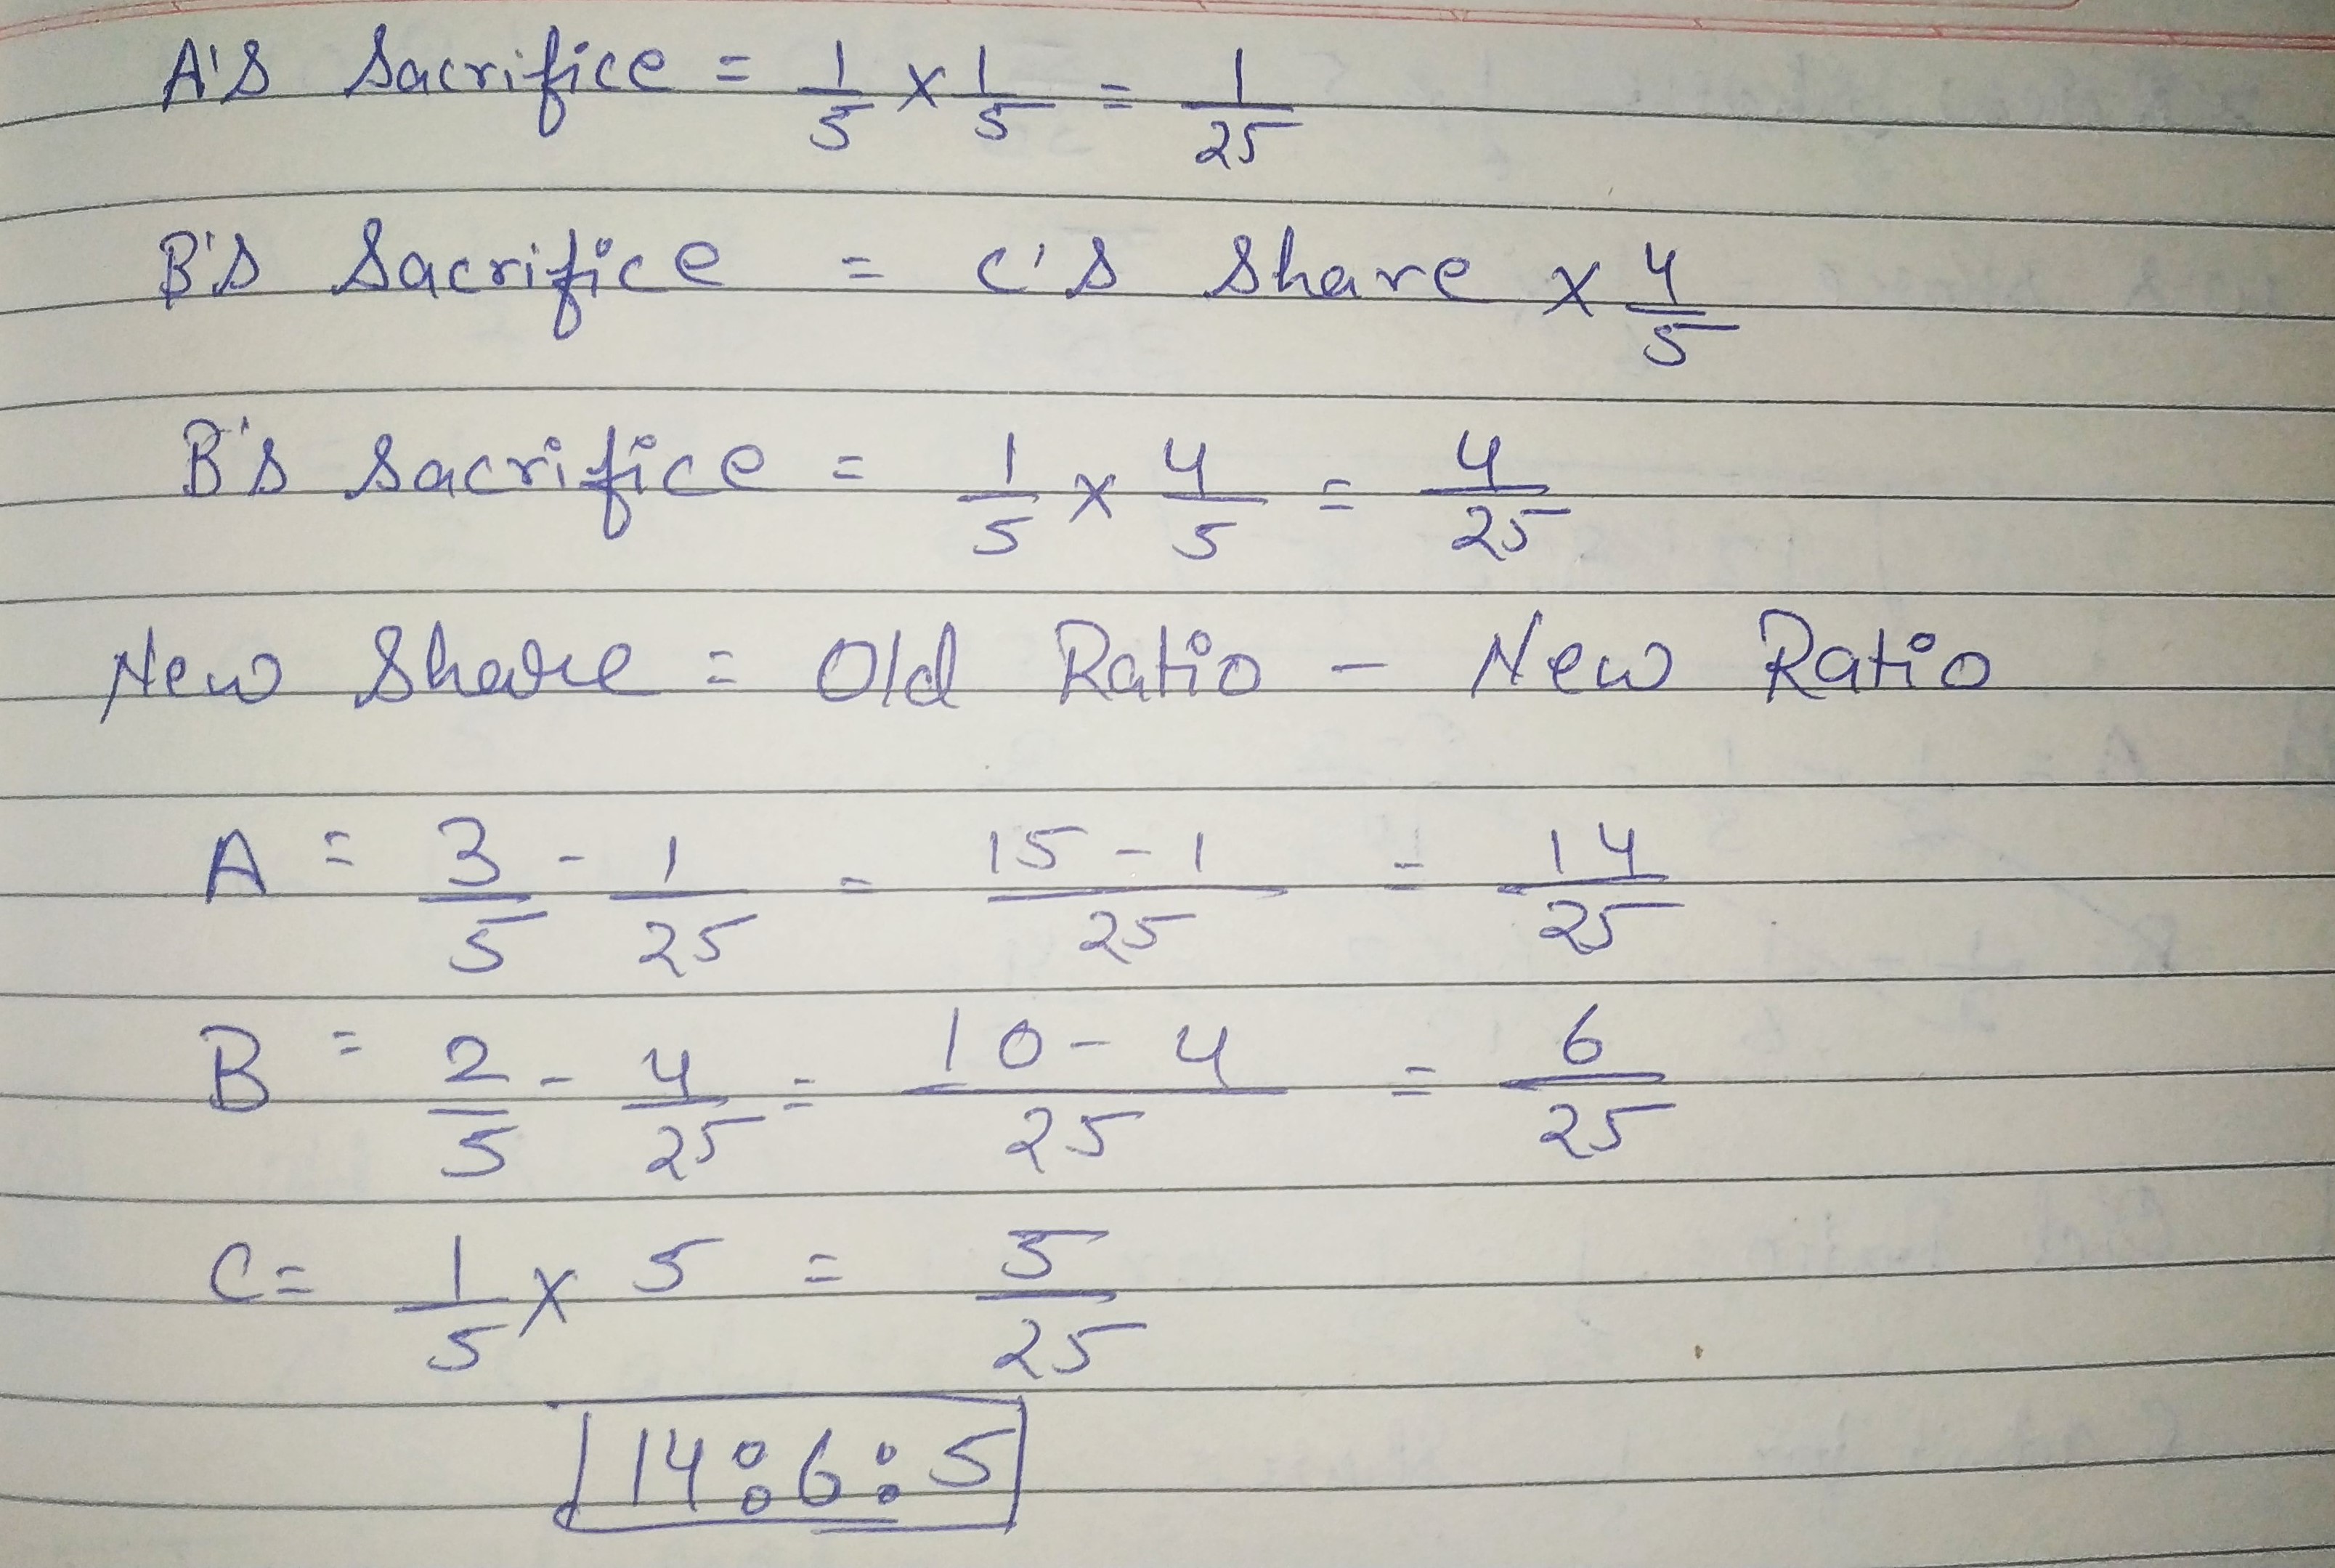 A's Sacrifice = 1/5 × 1/5 = 1/25
B's Sacrifice = C's Share × 4/5
B's Sacrifice = 1/5 × 4/5 = 4/25
New Share = Old Ratio - New Ratio
A = 3/5 - 1/25 = 15-1/25 = 14/25
B = 2/5 - 4/25 = 10-4/25 = 6/25
C = 1/5 × 5 = 5/25
14:6:5